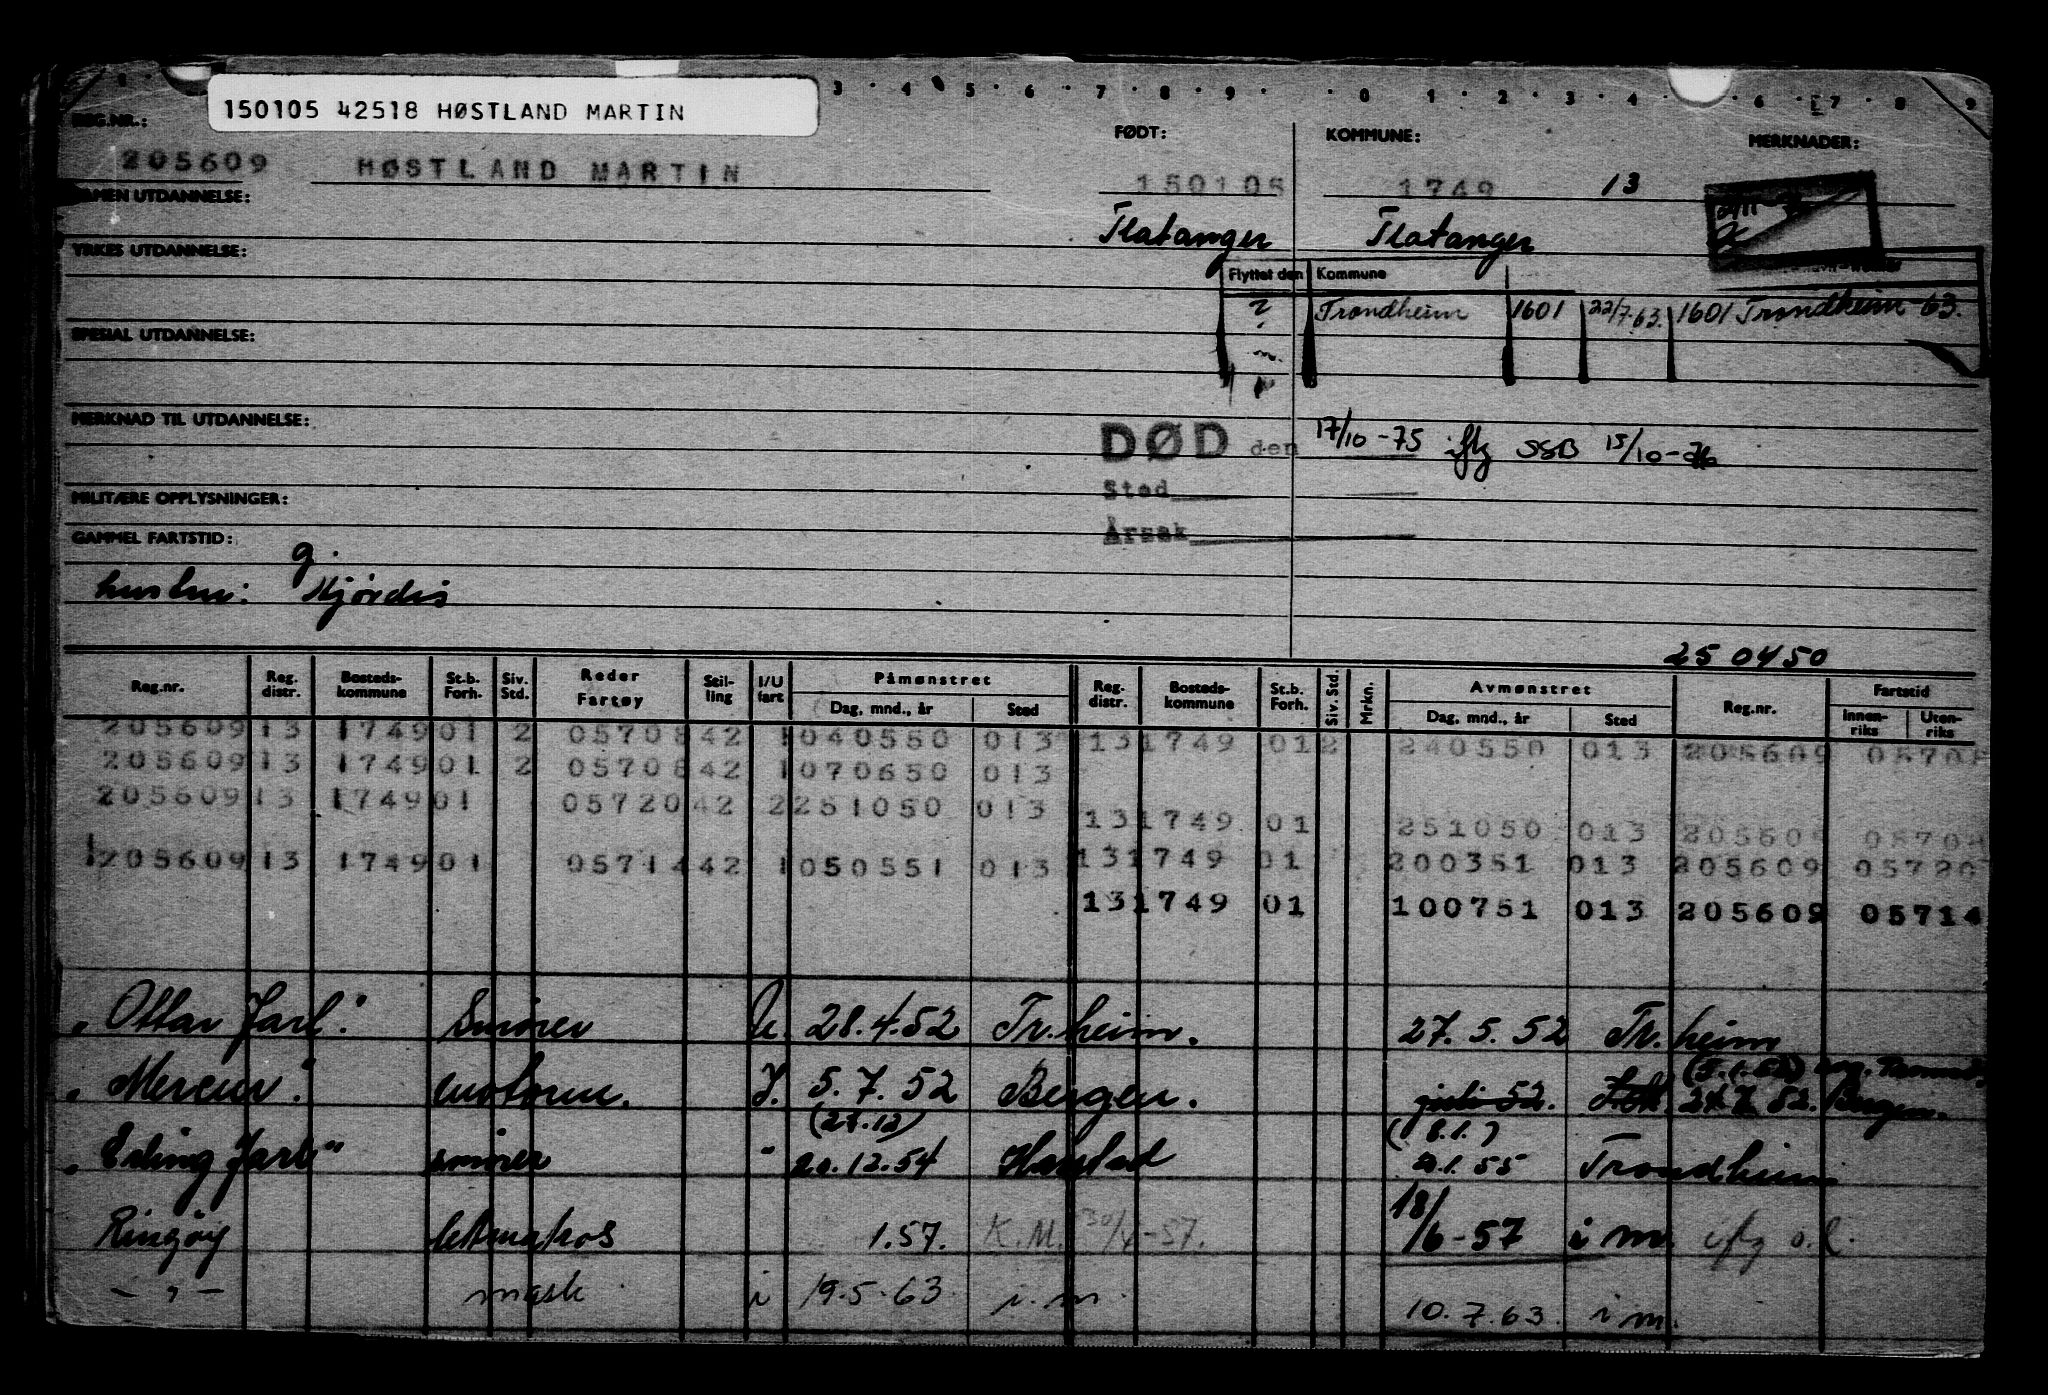 3 · 4 · 5 · 6 · 7 · 8 · 9 · · 0 · 1 · 2 · 3 · 4 · 6 · 7 · 8 · 9
150105 42518 HØSTLAND MARTIN
REG.NR.: FØDT: KOMMUNE: MERKNADER:
205609 HØSTLAND MARTIN 150105 1749 13
EKSAMEN UTDANNELSE:
Flatanger Flatanger
YRKES UTDANNELSE:
Flyttet den Kommune
? Trondheim 1601 22/7.63. 1601 Trondheim 63.
SPESIAL UTDANNELSE:
MERKNAD TIL UTDANNELSE:
DØD den 17/10-75 iflg SSB 15/10-76
MILITÆRE OPPLYSNINGER: Sted
GAMMEL FARTSTID: Årsak
g.
hustru: Hjørdis
250450
Reg.nr. Reg. distr. Bosteds-kommune St.b. Forh. Siv. Std. Reder Fartøy Stil-ling I/U fart Påmønstret Dag, mnd., år Sted Reg. distr. Bosteds-kommune St.b. Forh. Siv. Std. Mrkn. Avmønstret Dag, mnd., år Sted Reg.nr. Fartstid Innen-riks Uten-riks
205609 13 1749 01 2 05708 42 1 040550 013 13 1749 01 2 240550 013 205609 05708
205609 13 1749 01 2 05708 42 1 070650 013
205609 13 1749 01 05720 42 2 251050 013
13 1749 01 251050 013 205609 05708
205609 13 1749 01 05714 42 1 050551 013 13 1749 01 200351 013 205609 05720
13 1749 01 100751 013 205609 05714
"Ottar Jarl". Smører U. 28.4.52 Tr.heim. 27.5.52 Tr.heim
"Mercur". motorm. I. 5.7.52 Bergen. juli 52. 24.7.52. Bergen.
(27.12) (8.1.)
"Erling Jarl" smører " 20.12.54 Harstad 55 Trondheim
Ringøy 1.57. K.M. 30/4-57. 18/6-57 i m. iflg o.l.
- " - mask i 19.5.63 i.m. 10.7.63. i m.